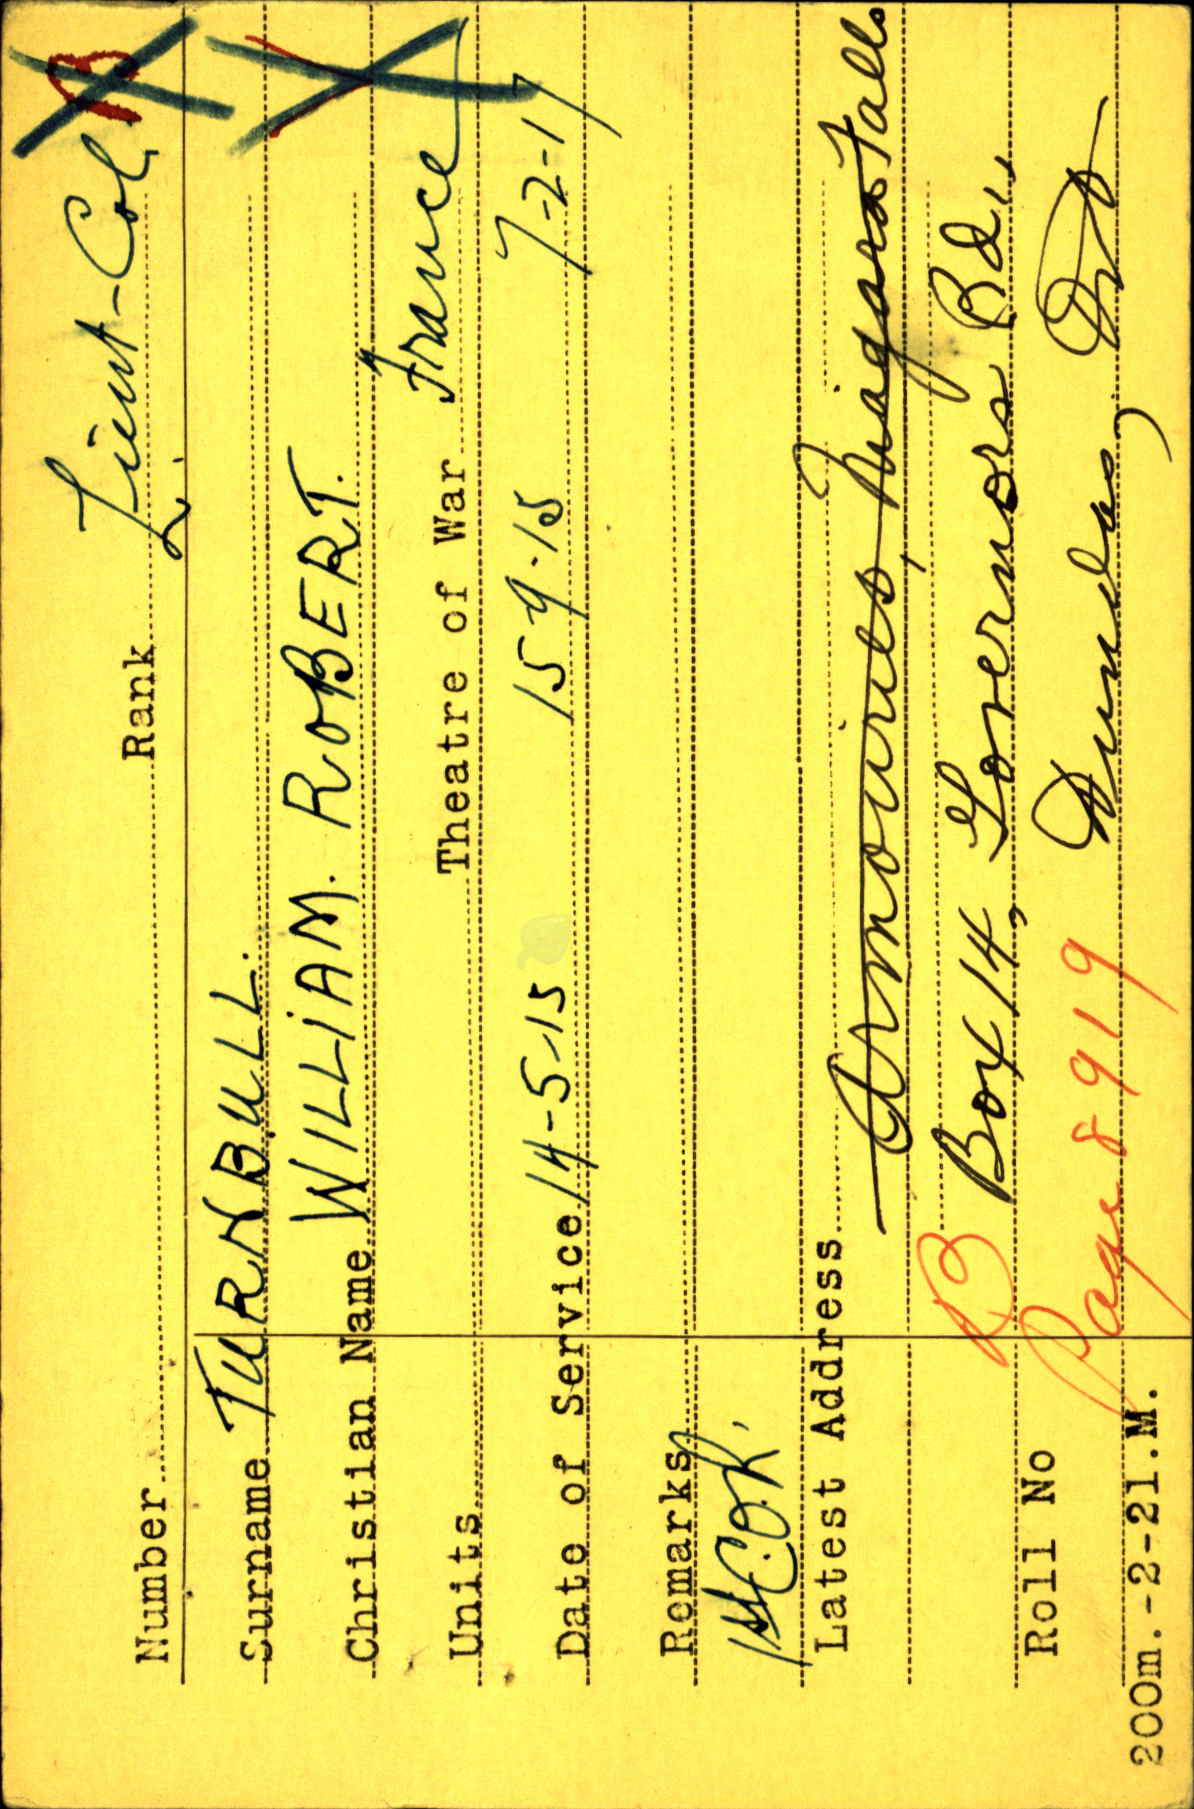 Number Rank Lieut-Col.
Surname TURNBULL.
Christian Name WILLIAM. ROBERT.
Units Theatre of War France
Date of Service 14-5-15 15-9-15 7-2-17
Remarks
Latest Address Armouries, Niagara Falls
B Box 14, Governors Rd.,
Roll No Page 8919 Dundas, Ont
200m.-2-21.M.